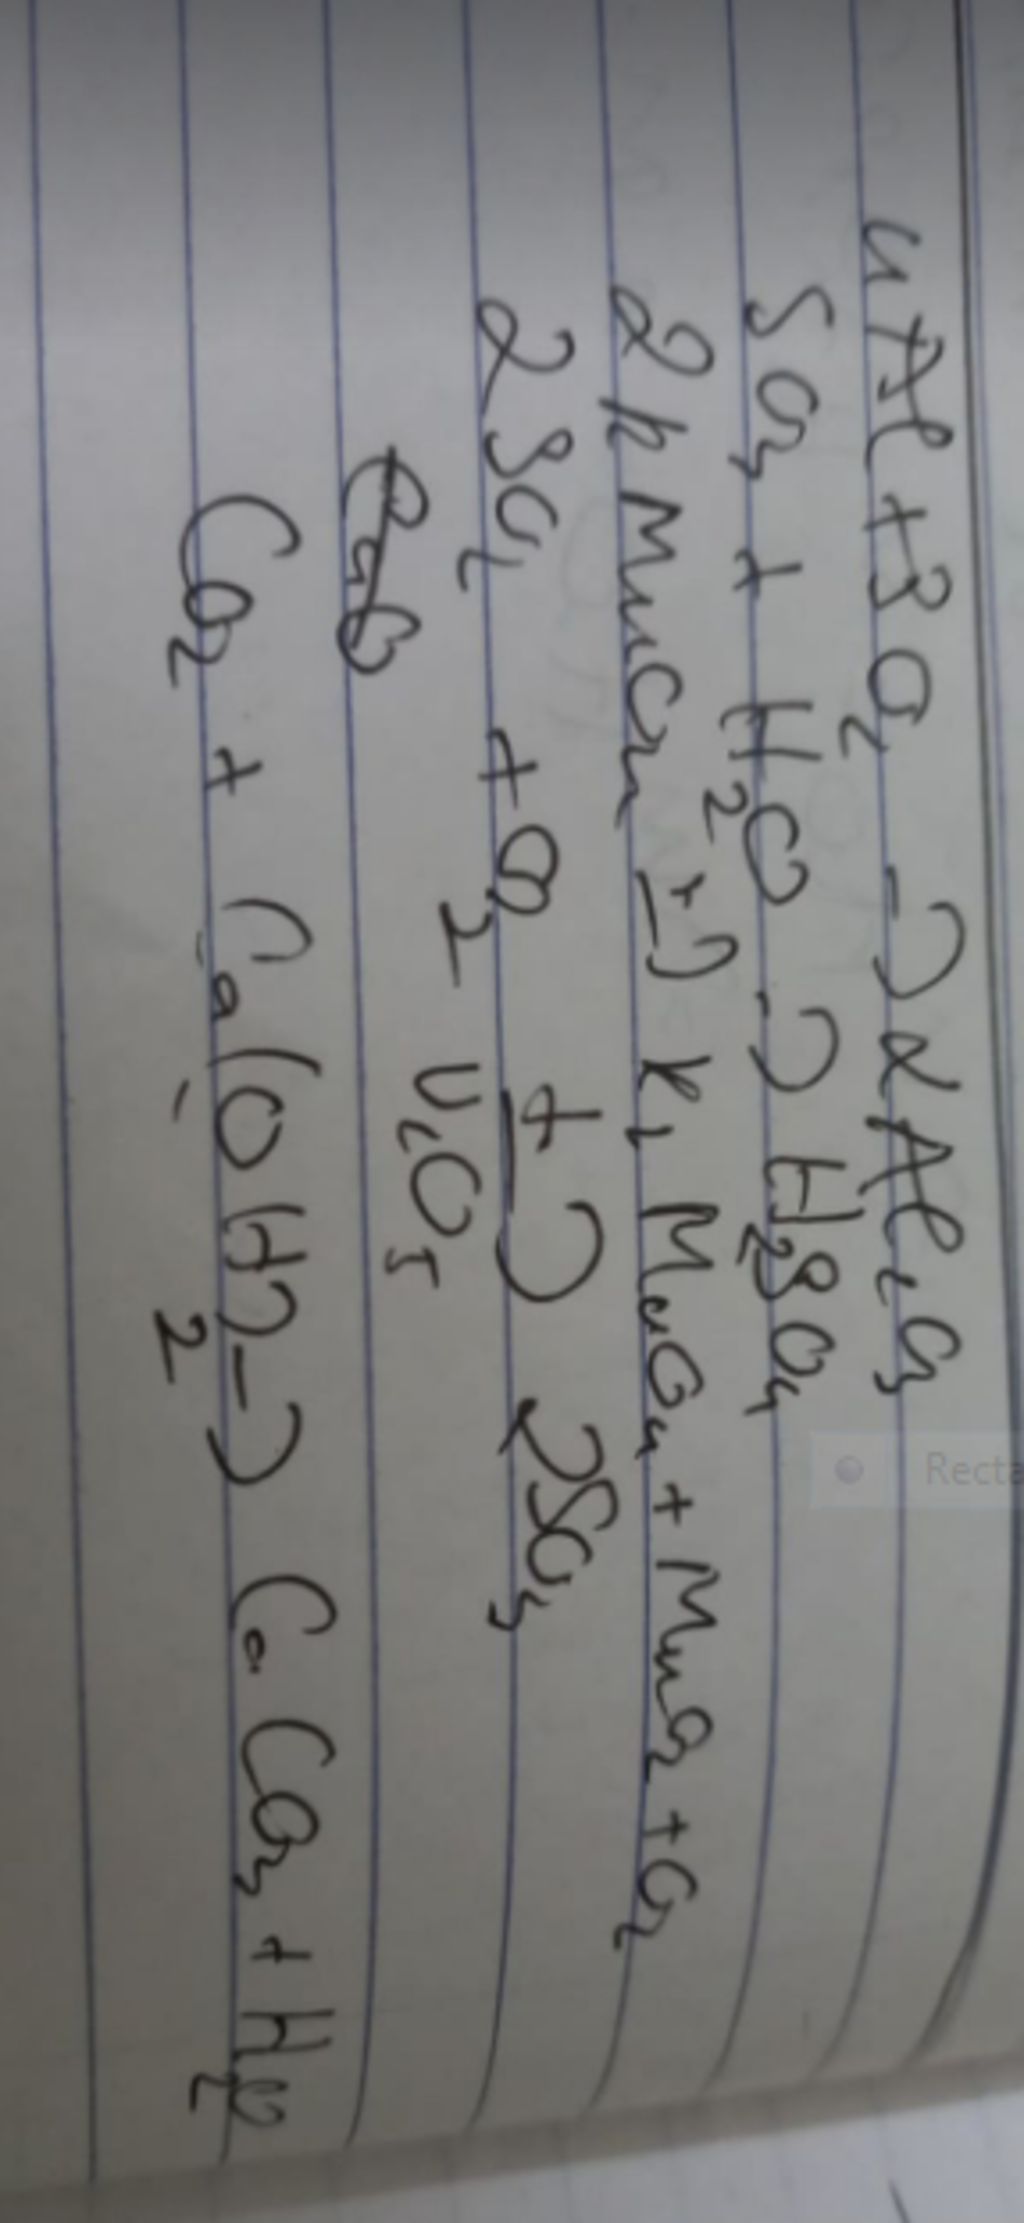 4Al + 3O₂ → 2Al₂O₃
SO₃ + H₂O → H₂SO₄
2KMnO₄ t→ K₂MnO₄ + MnO₂ + O₂
2SO₂ + O₂ t→ 2SO₃
V₂O₅
CO₂ + Ca(OH)₂ → CaCO₃ + H₂O
Recta